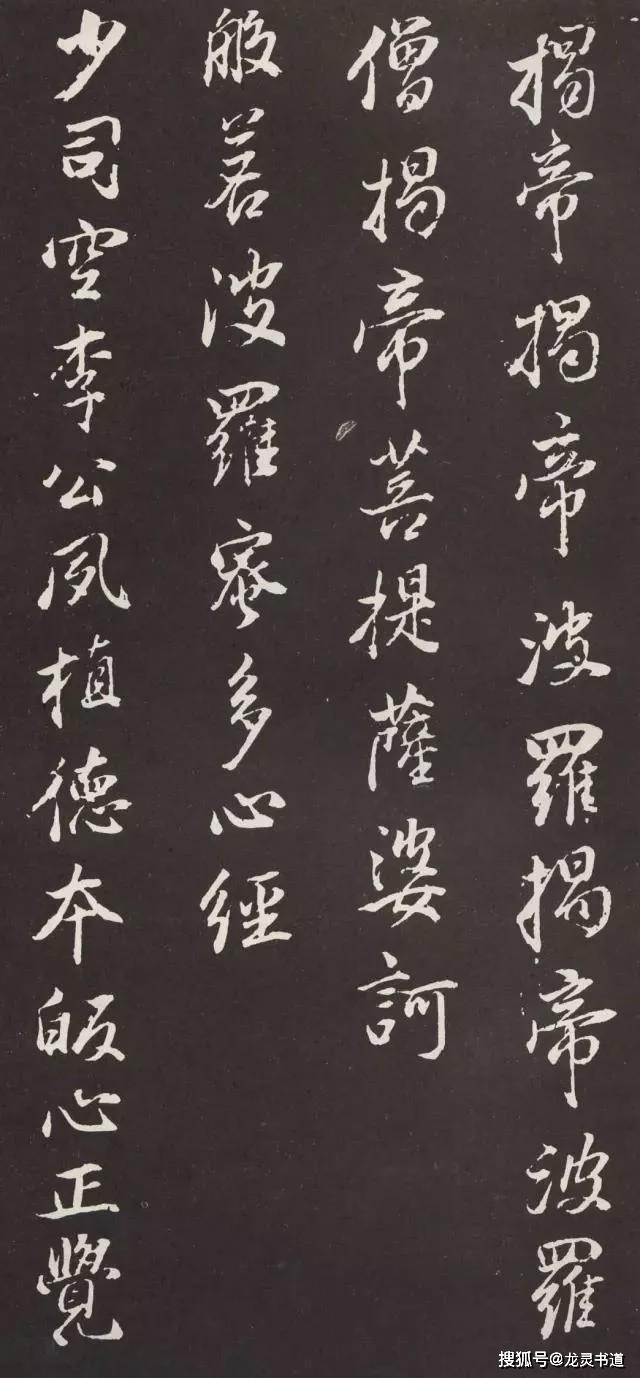 揭帝揭帝波羅揭帝波羅
僧揭帝菩提薩婆訶
般若波羅蜜多心經
少司空李公夙植德本皈心正覺
搜狐号@龙灵书道